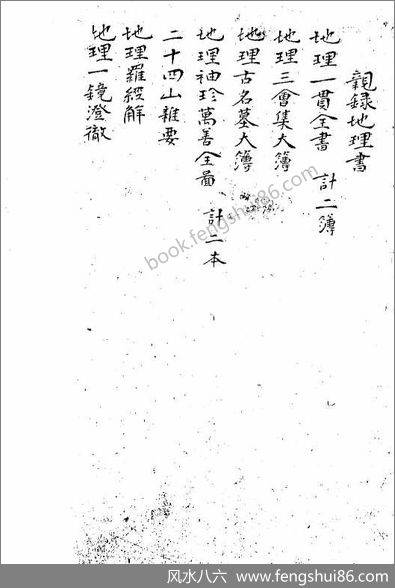 親録地理書
地理一貫全書 計二簿
地理三會集大簿
地理古名墓大簿
地理袖珍萬善全圖 計二本
二十四山雜要
地理羅經解
地理一鏡澄徹
book.fengshui86.com
风水八六 www.fengshui86.com